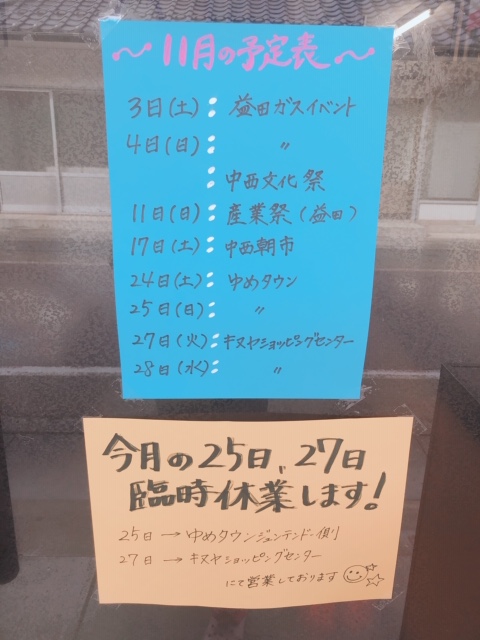 ～11月の予定表～
3日(土): 益田ガスイベント
4日(日): 〃
: 中西文化祭
11日(日): 産業祭(益田)
17日(土): 中西朝市
24日(土): ゆめタウン
25日(日): 〃
27日(火): キヌヤショッピングセンター
28日(水): 〃
今月の25日、27日
臨時休業します!
25日→ゆめタウンジュンテンドー側
27日→キヌヤショッピングセンター
にて営業しております